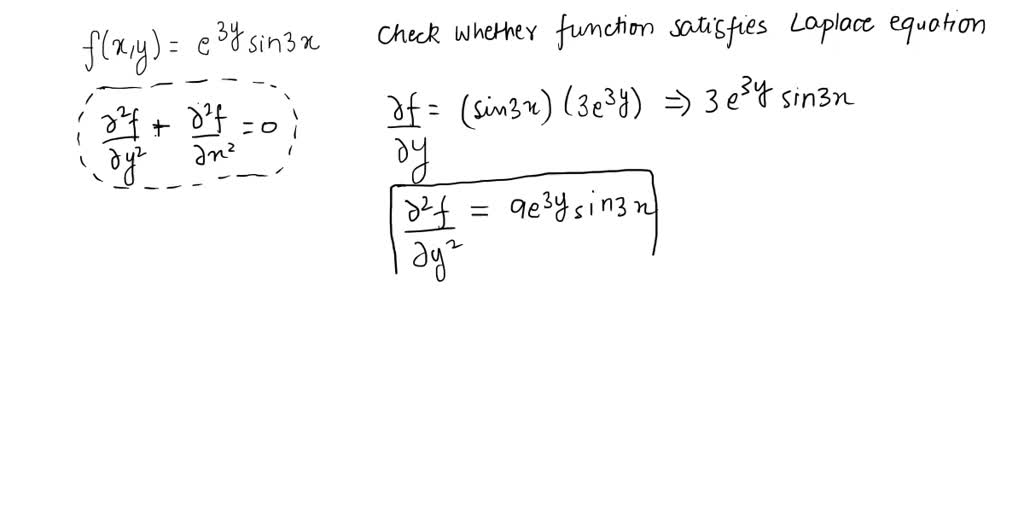 f(x,y) = e^3y sin3x
∂²f/∂y² + ∂²f/∂x² = 0
Check whether function satisfies Laplace equation
∂f/∂y = (sin3x)(3e^3y) ⇒ 3e^3y sin3x
∂²f/∂y² = 9e^3y sin3x